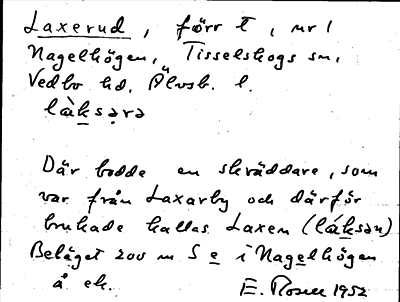 Laxerud, förr t, nr 1
Nagelhögen, Tisselskogs sn,
Vedbo hd, Älvsb. l.
làksərə
Där bodde en skräddare, som
var från Laxarby och därför
brukade kallas Laxen (láksən)
Beläget 200 m S e i Nagelhögen
å ek. E. Rosell 1952